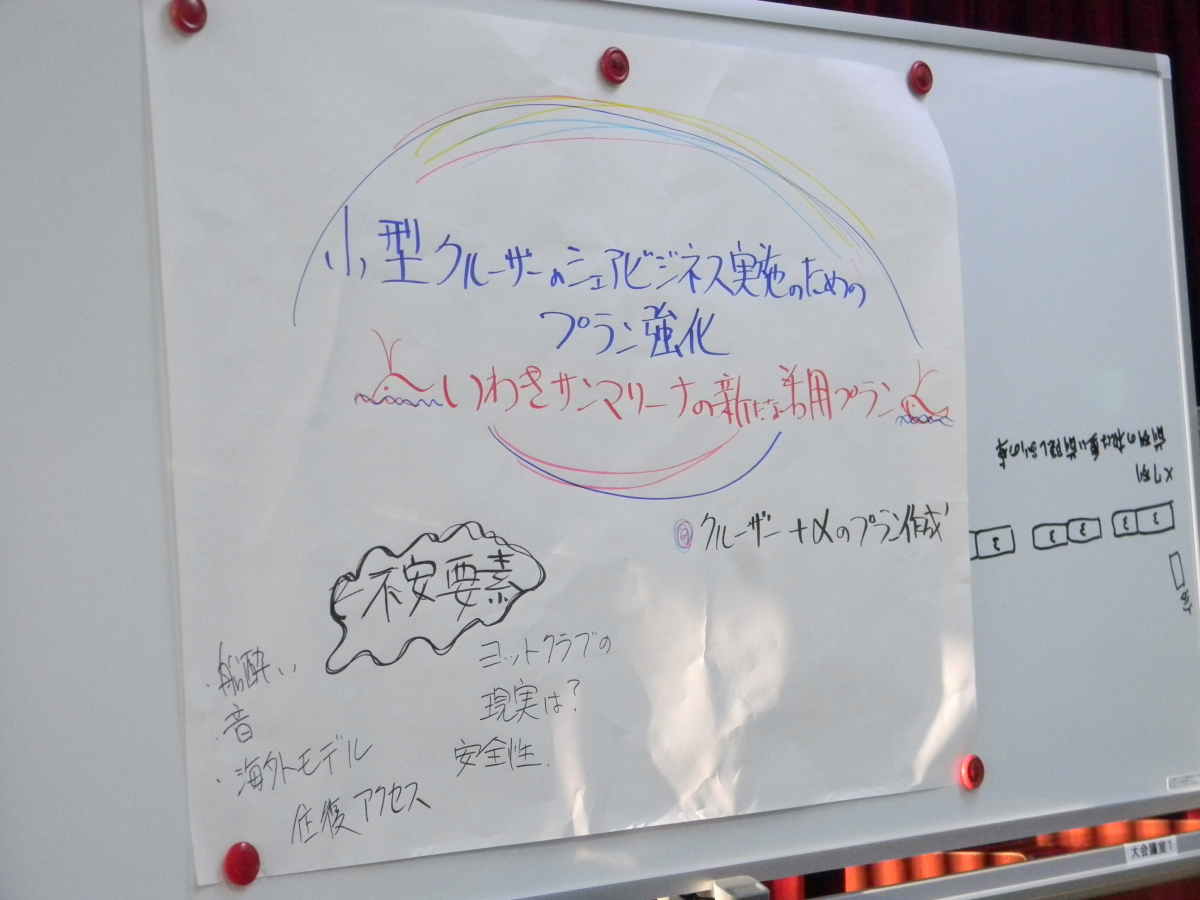 小型クルーザーのシェアビジネス実施のための
プラン強化
いわきサンマリーナの新たな活用プラン
クルーザー+αのプラン作成
不安要素
・船酔い
・音
・海外モデル
往復アクセス
ヨットクラブの
現実は?
安全性.
大会議室1